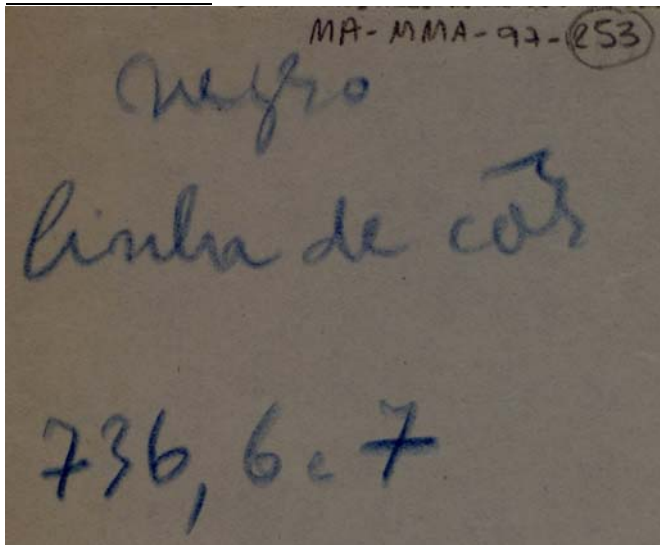 MA-MMA-97-253
negro
linha de côr
736, 6 e 7